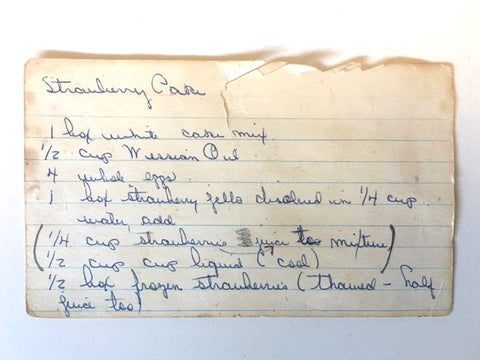 Strawberry Cake
1 box white cake mix
1/2 cup Wessian Oil
4 whole eggs
1 box strawberry jello disolved in 1/4 cup
water, add
(1/4 cup strawberries juice too mixture)
(1/2 cup cup liquid (cool)
1/2 box frozen strawberries (thawed - half
juice too)